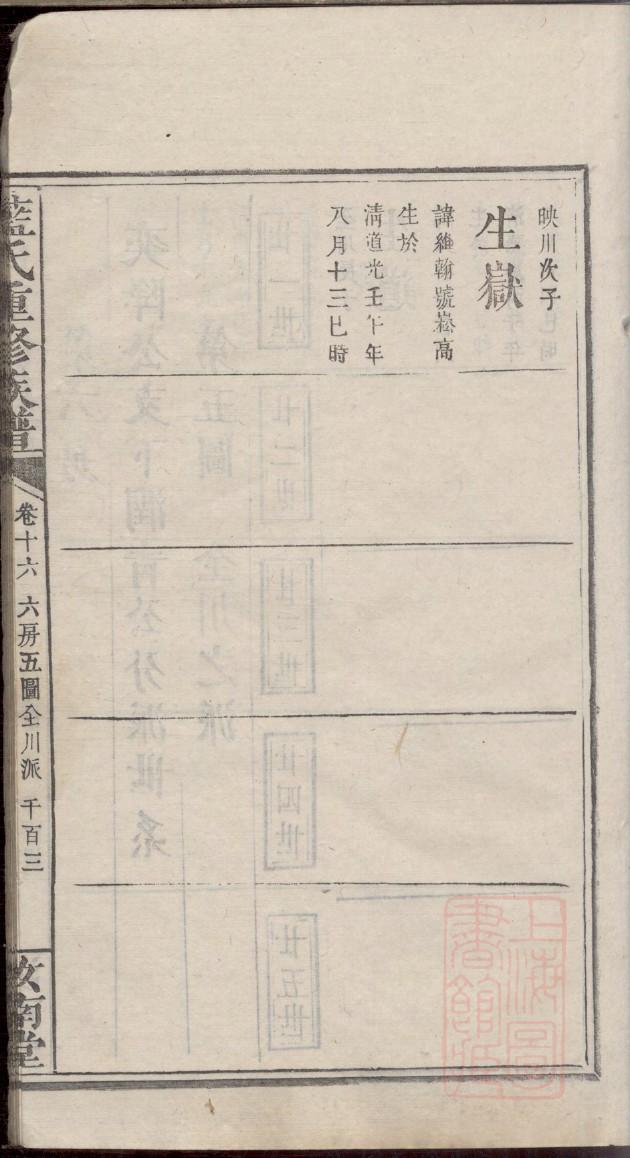 映川次子
生嶽
諱維翰號崧高
生於
清道光壬午年
八月十三巳時
藍氏重修族譜
卷十六 六房五圖全川派 千百三
汝南堂
上海圖
書館藏